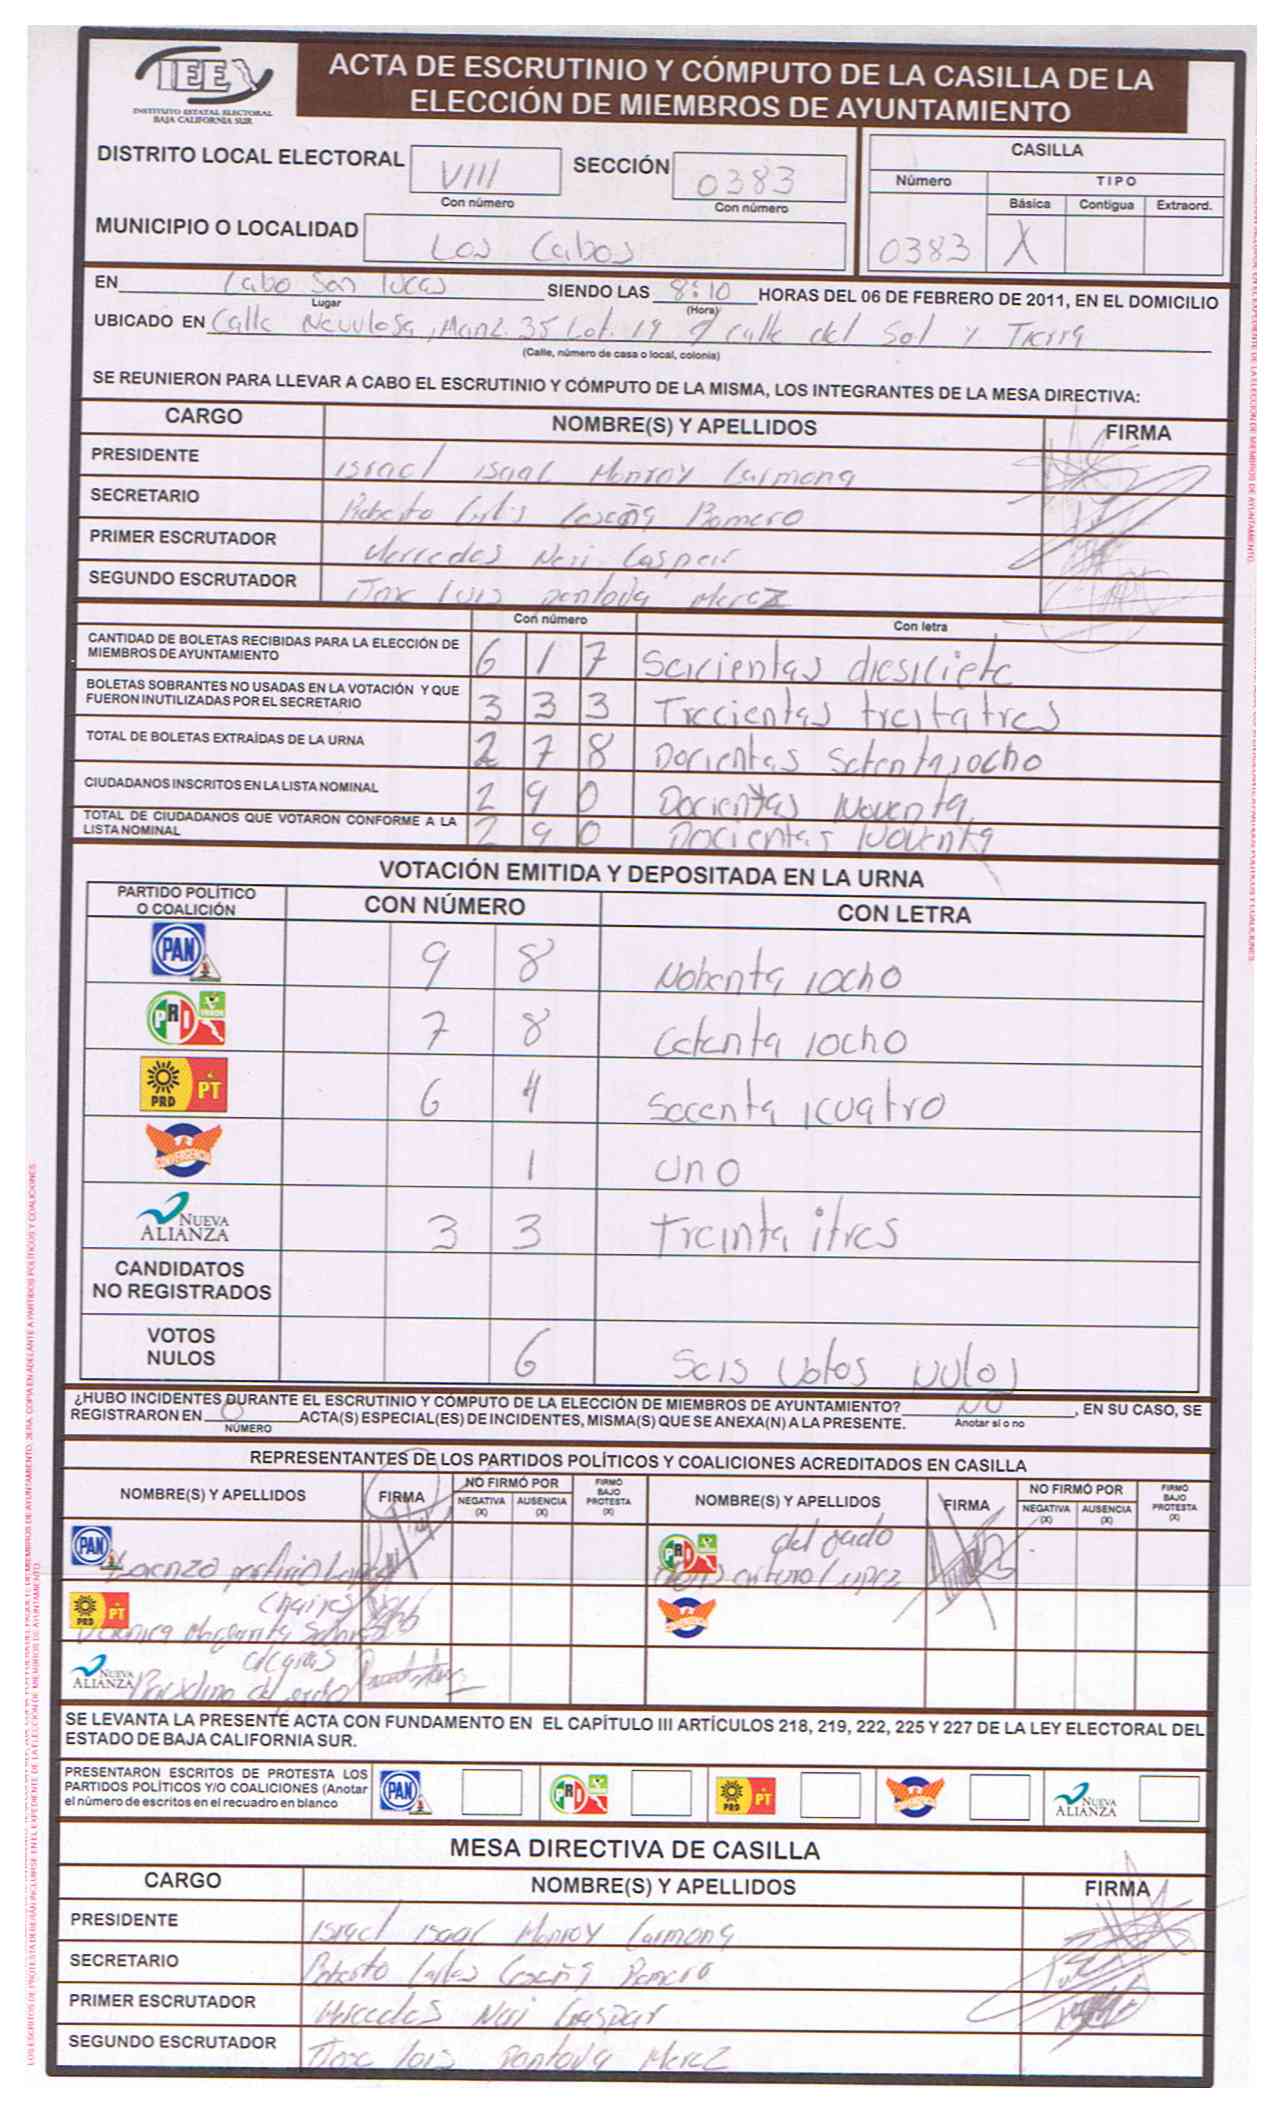 IEE
INSTITUTO ESTATAL ELECTORAL
BAJA CALIFORNIA SUR
ACTA DE ESCRUTINIO Y CÓMPUTO DE LA CASILLA DE LA
ELECCIÓN DE MIEMBROS DE AYUNTAMIENTO
DISTRITO LOCAL ELECTORAL VIII SECCIÓN 0383
Con número Con número
MUNICIPIO O LOCALIDAD Los Cabos
CASILLA
Número TIPO
Básica Contigua Extraord.
0383 X
EN Cabo San Lucas SIENDO LAS 8:10 HORAS DEL 06 DE FEBRERO DE 2011, EN EL DOMICILIO
Lugar (Hora)
UBICADO EN Calle Nevulosa, Manz. 35 Lot. 19 calle del Sol y Tierra
(Calle, número de casa o local, colonia)
SE REUNIERON PARA LLEVAR A CABO EL ESCRUTINIO Y CÓMPUTO DE LA MISMA, LOS INTEGRANTES DE LA MESA DIRECTIVA:
CARGO NOMBRE(S) Y APELLIDOS FIRMA
PRESIDENTE Israel Isaac Monroy Carmona
SECRETARIO Roberto Carlos Ceseña Romero
PRIMER ESCRUTADOR Mercedes Neri Gaspar
SEGUNDO ESCRUTADOR Jose Luis Pantoja Merez
Con número Con letra
CANTIDAD DE BOLETAS RECIBIDAS PARA LA ELECCIÓN DE
MIEMBROS DE AYUNTAMIENTO 6 1 7 Seicientas diesiciete
BOLETAS SOBRANTES NO USADAS EN LA VOTACIÓN Y QUE
FUERON INUTILIZADAS POR EL SECRETARIO 3 3 3 Trecientas treitatres
TOTAL DE BOLETAS EXTRAÍDAS DE LA URNA 2 7 8 Docientas Setentaiocho
CIUDADANOS INSCRITOS EN LA LISTA NOMINAL 2 9 0 Docientas Noventa
TOTAL DE CIUDADANOS QUE VOTARON CONFORME A LA
LISTA NOMINAL 2 9 0 Docientas Noventa
VOTACIÓN EMITIDA Y DEPOSITADA EN LA URNA
PARTIDO POLÍTICO
O COALICIÓN CON NÚMERO CON LETRA
PAN 9 8 Nobenta iocho
PRI VERDE 7 8 Cetenta iocho
PRD PT 6 4 Secenta icuatro
CONVERGENCIA 1 uno
NUEVA
ALIANZA 3 3 Treinta itres
CANDIDATOS
NO REGISTRADOS
VOTOS
NULOS 6 Seis Votos Nulos
¿HUBO INCIDENTES DURANTE EL ESCRUTINIO Y CÓMPUTO DE LA ELECCIÓN DE MIEMBROS DE AYUNTAMIENTO? NO, EN SU CASO, SE
REGISTRARON EN 0 ACTA(S) ESPECIAL(ES) DE INCIDENTES, MISMA(S) QUE SE ANEXA(N) A LA PRESENTE. Anotar sí o no
NÚMERO
REPRESENTANTES DE LOS PARTIDOS POLÍTICOS Y COALICIONES ACREDITADOS EN CASILLA
NOMBRE(S) Y APELLIDOS FIRMA NO FIRMÓ POR NEGATIVA (X) AUSENCIA (X) FIRMÓ BAJO PROTESTA (X) NOMBRE(S) Y APELLIDOS FIRMA NO FIRMÓ POR NEGATIVA (X) AUSENCIA (X) FIRMÓ BAJO PROTESTA (X)
PAN Lorenzo PRI delgado
arturo Lopez
PRD PT Veronica Margarita
NUEVA
ALIANZA
SE LEVANTA LA PRESENTE ACTA CON FUNDAMENTO EN EL CAPÍTULO III ARTÍCULOS 218, 219, 222, 225 Y 227 DE LA LEY ELECTORAL DEL
ESTADO DE BAJA CALIFORNIA SUR.
PRESENTARON ESCRITOS DE PROTESTA LOS
PARTIDOS POLÍTICOS Y/O COALICIONES (Anotar
el número de escritos en el recuadro en blanco
PAN PRI PRD PT NUEVA ALIANZA
MESA DIRECTIVA DE CASILLA
CARGO NOMBRE(S) Y APELLIDOS FIRMA
PRESIDENTE Israel Isaac Monroy Carmona
SECRETARIO Roberto Carlos Ceseña Romero
PRIMER ESCRUTADOR Mercedes Neri Gaspar
SEGUNDO ESCRUTADOR Jose Luis Pantoja Merez